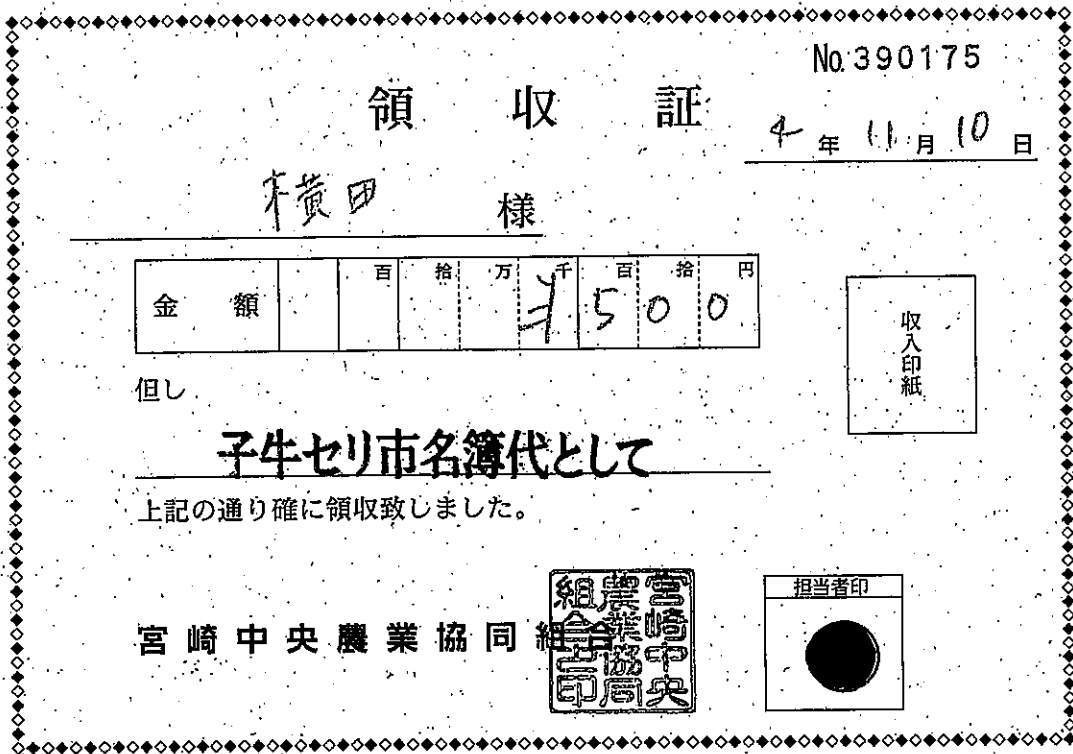 No.390175
領収証
4年11月10日
横田 様
金額 百 拾 万 千 百 拾 円
¥500
収入印紙
但し
子牛セリ市名簿代として
上記の通り確に領収致しました。
宮崎中央農業協同組合
宮崎中央農業協同組合之印
担当者印